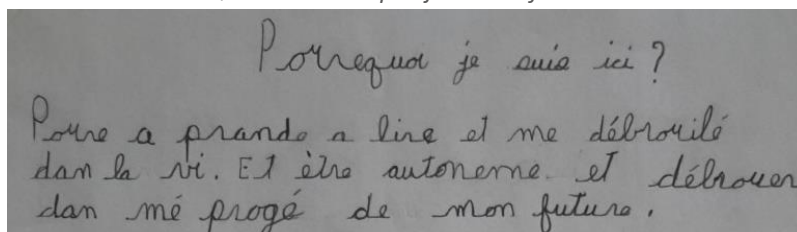 Pourequoi je suis ici ?
Poure a prande a lire et me débrouilé
dan la vi. Et être autoneme. et débrouer
dan mé progé de mon future.